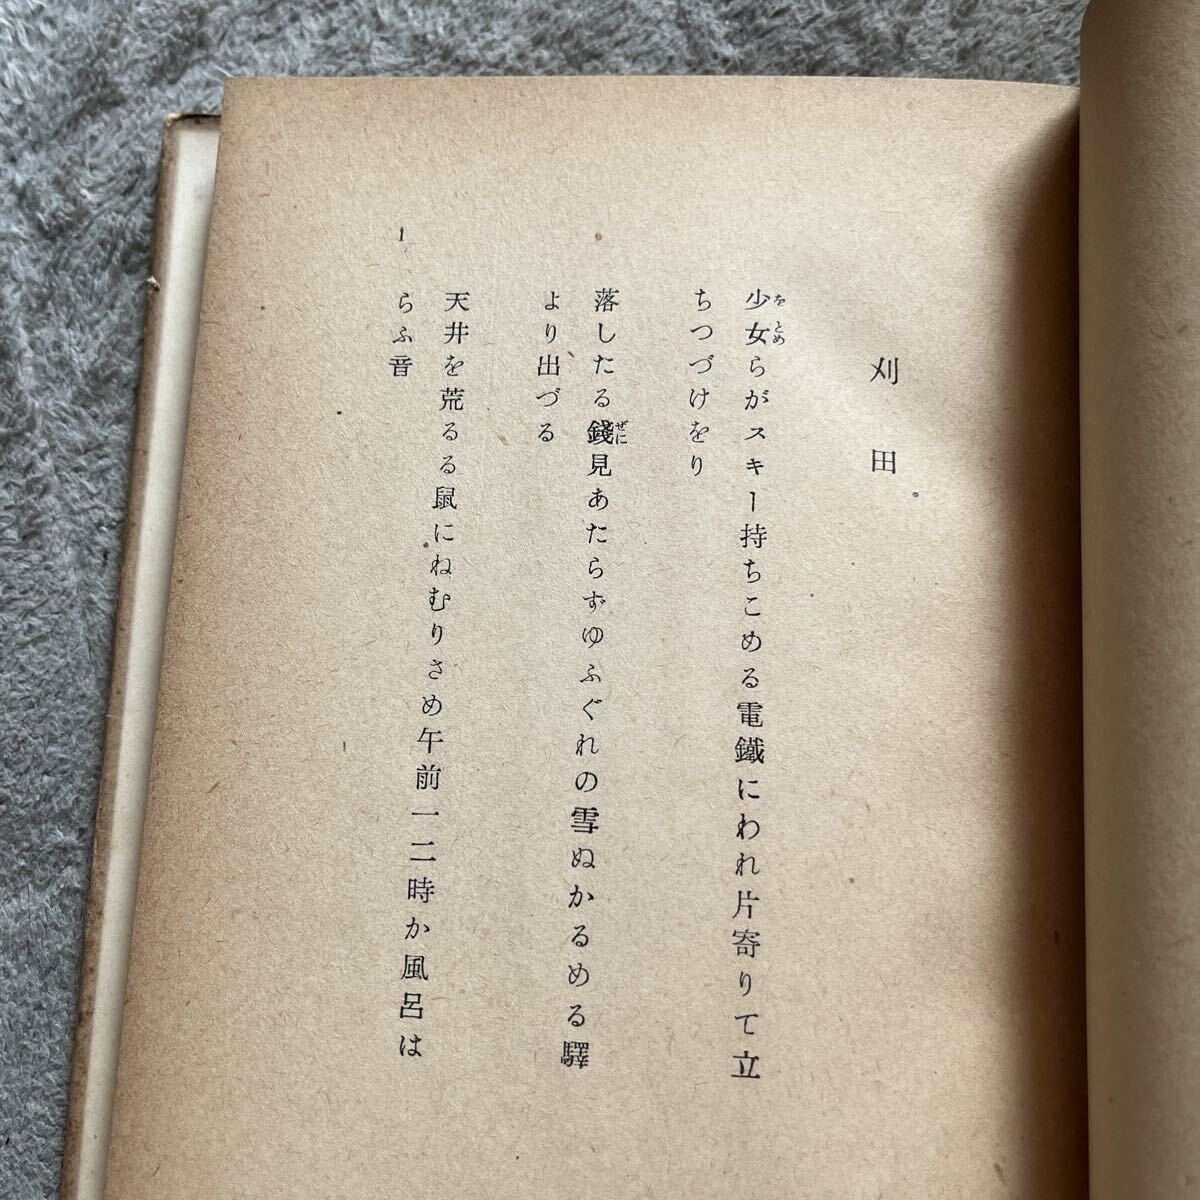 刈田
少女らがスキー持ちこめる電鐵にわれ片寄りて立
をとめ
ちつづけをり
落したる錢見あたらずゆふぐれの雪ぬかるめる驛
ぜに
より出づる
天井を荒るる鼠にねむりさめ午前一二時か風呂は
らふ音
1